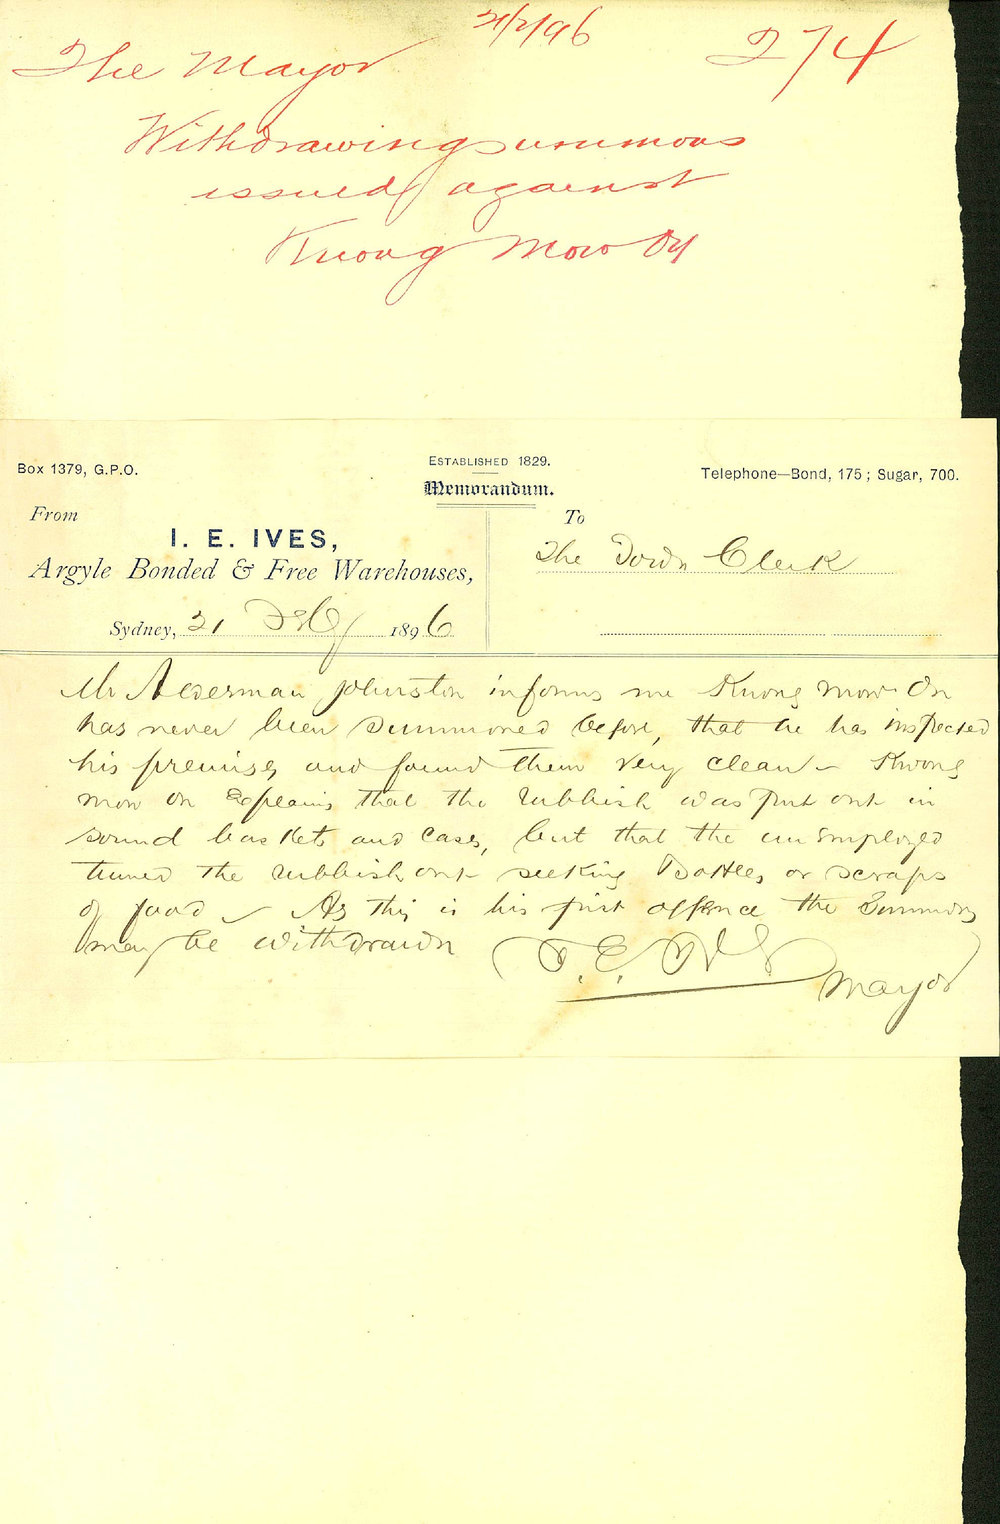 21/2/96
The Mayor
274
Withdrawing summons
issued against
Kwong Mow On
Box 1379, G.P.O.
ESTABLISHED 1829.
Memorandum.
Telephone—Bond, 175; Sugar, 700.
From
I. E. IVES,
Argyle Bonded & Free Warehouses,
Sydney, 21 Feby 1896
To
The Town Clerk
Mr Alderman Johnston informs me Kwong Mow On
has never been summoned before, that he has inspected
his premises and found them very clean – Kwong
Mow On Explains that the rubbish was put out in
sound baskets and cases, but that the unemployed
turned the rubbish out seeking Bottles or scraps
of food – As this is his first offence the Summons
may be withdrawn
I. E. Ives
Mayor